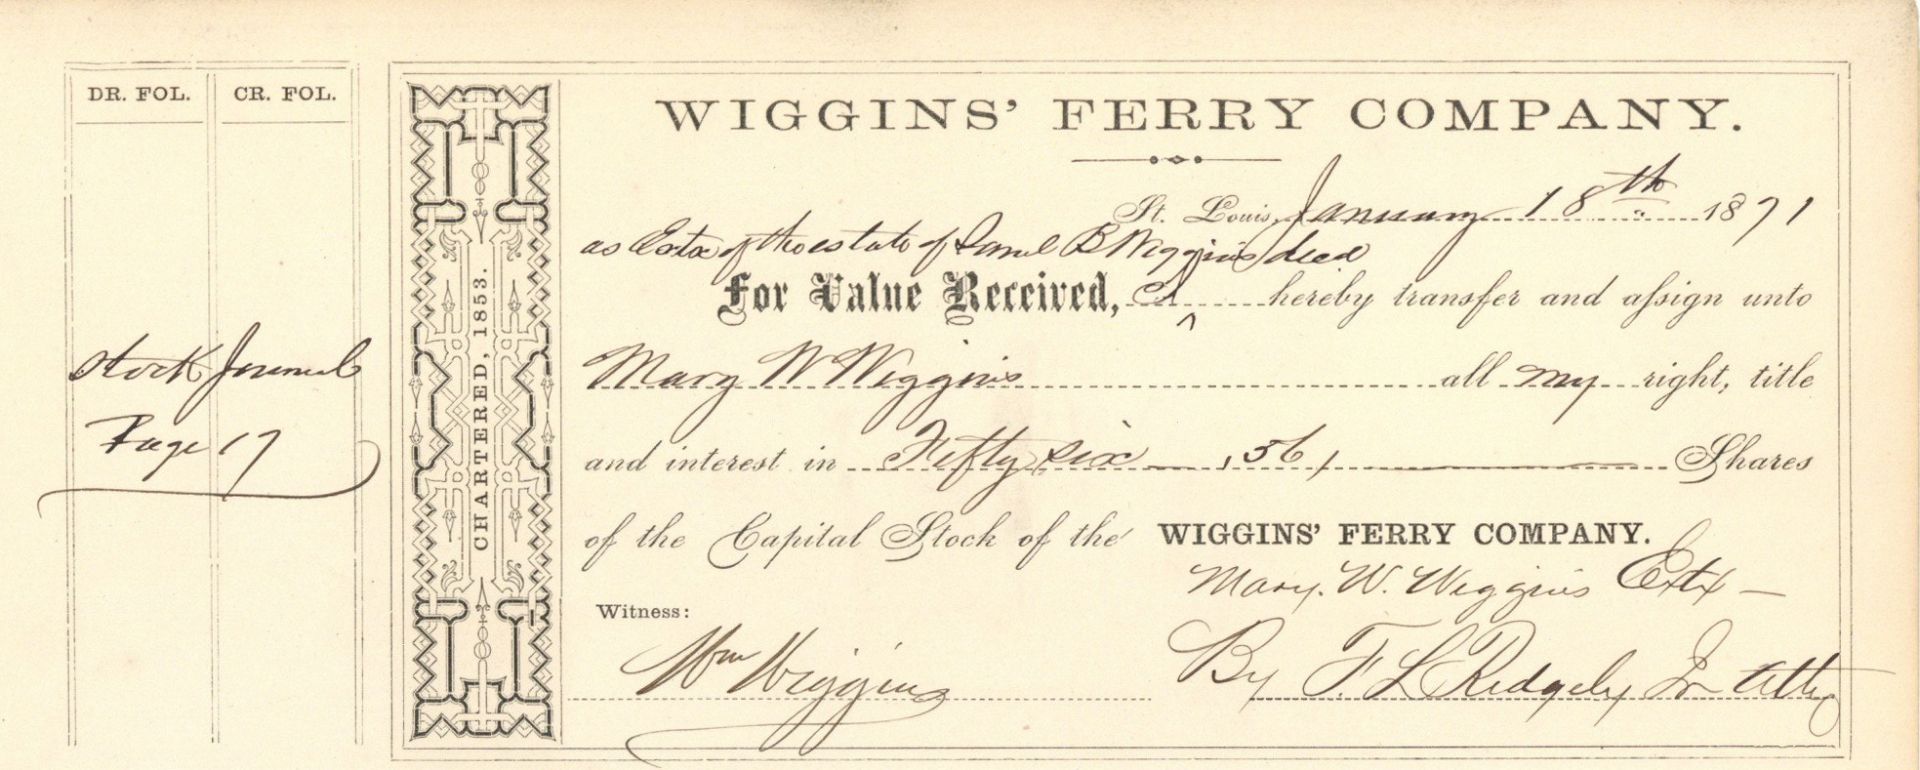 DR. FOL. CR. FOL.
Stock Journal
Page 17
CHARTERED, 1853.
WIGGINS' FERRY COMPANY.
St. Louis, January 18th 1871
as Extx of the estate of Saml B Wiggins decd
For Value Received, I hereby transfer and assign unto
Mary W Wiggins all my right, title
and interest in Fifty six , 56 , Shares
of the Capital Stock of the WIGGINS' FERRY COMPANY.
Mary. W. Wiggins Extx
Witness:
Wm Wiggins By F. L. Ridgely Jr Atty